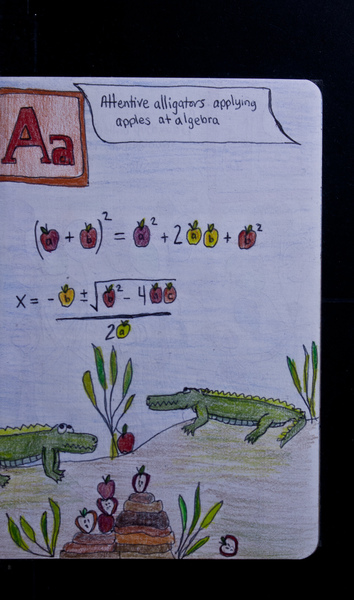 Aa
Attentive alligators applying
apples at algebra
(a + b)² = a² + 2ab + b²
x = -b ± √b² - 4ac
2a